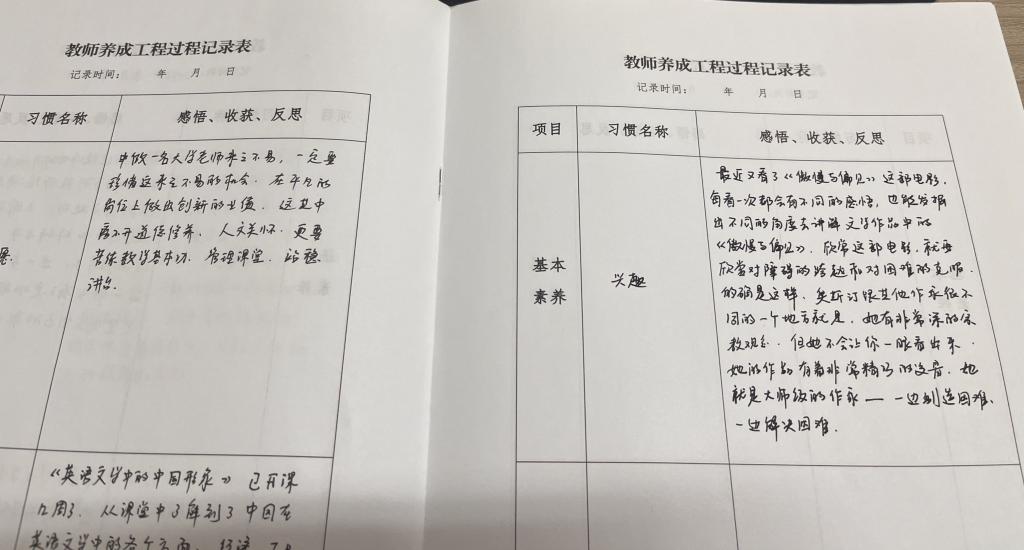 教师养成工程过程记录表
记录时间： 年 月 日
习惯名称 感悟、收获、反思
中做一名大学老师来之不易，一定要
珍惜这来之不易的机会．在平凡的
岗位上做出创新的业绩．这其中
离不开道德修养、人文关怀．更要
苦练教学基本功、管理课堂、站稳
讲台．
《英语文学中的中国形象》已开课
几周了．从课堂中了解到了中国在
英语文学中的各个方面．
教师养成工程过程记录表
记录时间： 年 月 日
项目 习惯名称 感悟、收获、反思
基本
素养
兴趣
最近又看了《傲慢与偏见》这部电影，
每看一次都会有不同的感悟，也能发掘
出不同的角度去讲解文学作品中的
《傲慢与偏见》．欣赏这部电影，就要
欣赏对障碍的跨越和对困难的克服．
的确是这样．奥斯汀跟其他作家很不
同的一个地方就是．她有非常深的宗
教观念．但她不会让你一眼看出来．
她的作品有着非常精巧的设置．她
就是大师级的作家——一边制造困难、
一边解决困难．